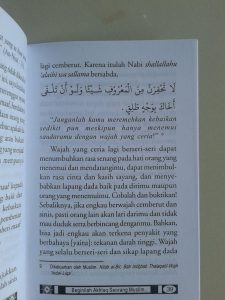 lagi cemberut. Karena itulah Nabi shallallahu
'alaihi wa sallama bersabda,
لَا تَحْقِرَنَّ مِنَ الْمَعْرُوْفِ شَيْئًا وَلَوْ أَنْ تَلْقَى
أَخَاكَ بِوَجْهٍ طَلْقٍ
"Janganlah kamu meremehkan kebaikan
sedikit pun meskipun hanya menemui
saudaramu dengan wajah yang ceria!"
Wajah yang ceria lagi berseri-seri dapat
menumbuhkan rasa senang pada hati orang yang
memandang dan mendatangimu, dapat menimbul-
kan rasa cinta dan kasih sayang, dan menyeb-
abkan lapang dada baik pada dirimu maupun
orang yang menemuimu. Cobalah dan buktikan!
Sebaliknya, jika engkau berwajah cemberut dan
sinis, pasti orang lain akan lari darimu dan tidak
mau duduk serta berbincang denganmu. Bahkan,
bisa jadi engkau akan terkena penyakit yang
berbahaya [yaitu]: tekanan darah tinggi. Wajah
yang selalu berseri-seri dapat melapangkan dada
Dikeluarkan oleh Muslim: Kitab al-Bir, Bab
Beginilah Akhlaq Seorang Muslim...
39